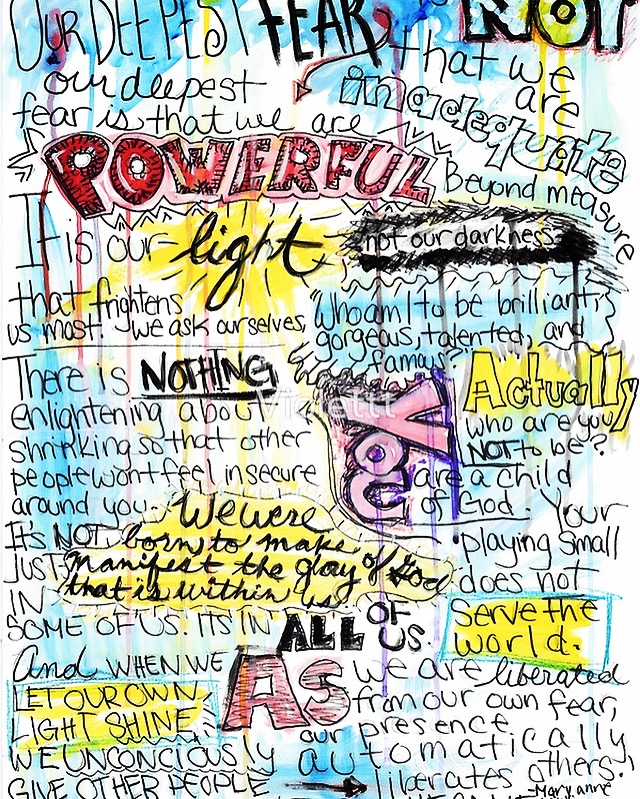 OUR DEEPEST FEAR, NOT
that we
are
inadequate
our deepest
fear is that we are
POWERFUL
Beyond measure
It is our light
not our darkness
that frightens
us most. we ask ourselves,
"Who am I to be brilliant,
gorgeous, talented, and
famous"
Actually
who are you
NOT to be?
You
are a child
of God.
Your
playing small
does not
Serve the
world.
There is NOTHING
enlightening about
shrinking so that other
people wont feel insecure
around you.
We were
born to make
manifest the glory of God
that is within us
It's NOT
JUST
IN
SOME OF US. ITS IN ALL OF US.
And WHEN WE
LET OUR OWN
LIGHT SHINE
WE UNCONCIOUSLY
GIVE OTHER PEOPLE
AS we are liberated
from our own fear,
our presence
automatically
liberates others.
-Maryanne
Violettt